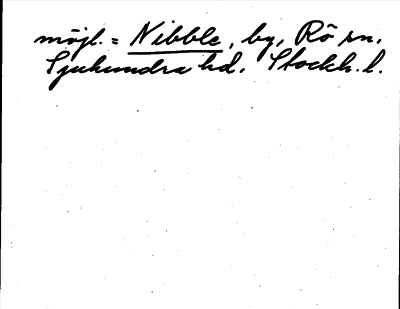 möjl. = Nibble, by, Rö sn.
Sjuhundra hd. Stockh. l.